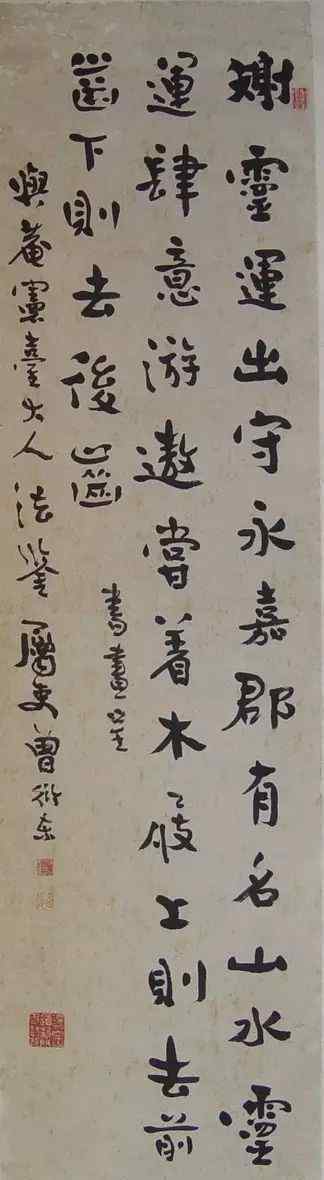 謝靈運出守永嘉郡有名山水靈
運肆意游遨嘗着木屐上則去前
齒下則去後齒
書畫
興菴憲臺大人法鑒屬吏曾衍東